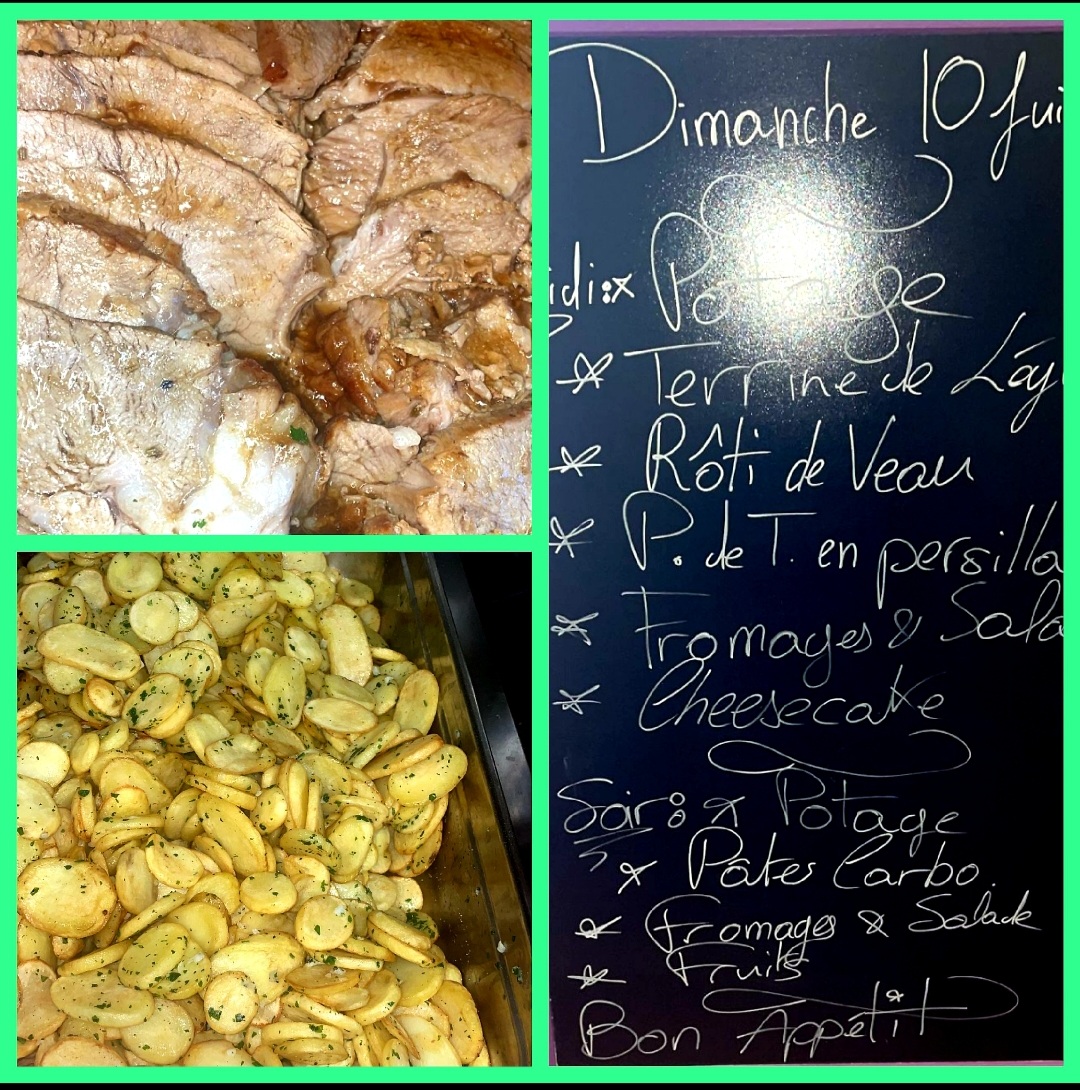 Dimanche 10 Jui
idi: x Potage
* Terrine de Lég
* Rôti de Veau
* P. de T. en persilla
* Fromages & Sala
* Cheesecake
Soir: x Potage
x Pâtes Carbo.
* Fromages & Salade
* Fruits
Bon Appétit